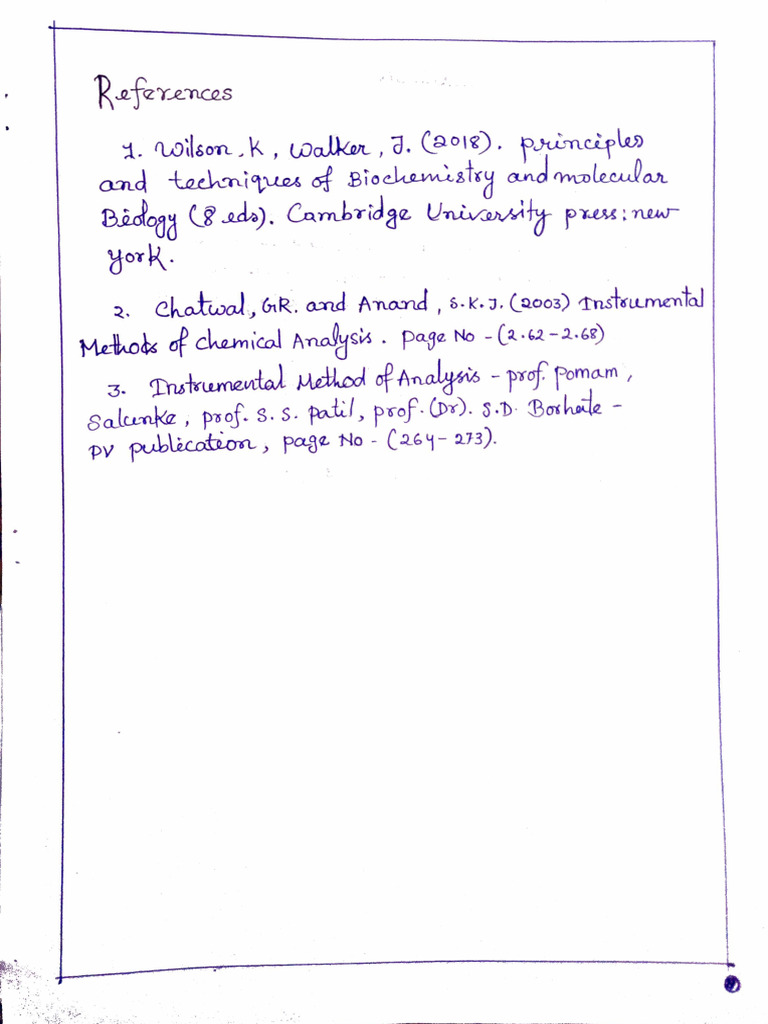 References
1. Wilson.K, Walker, J. (2018). principles
and techniques of Biochemistry and molecular
Biology (8 eds). Cambridge University press: new
york.
2. Chatwal, GR. and Anand, S.K.J. (2003) Instrumental
Methods of Chemical Analysis. Page No - (2.62-2.68)
3. Instrumental Method of Analysis - prof. Pomam,
Salunke, prof. S. S. Patil, prof. (Dr). S.D. Borhate -
PV publication, page No - (264-273).